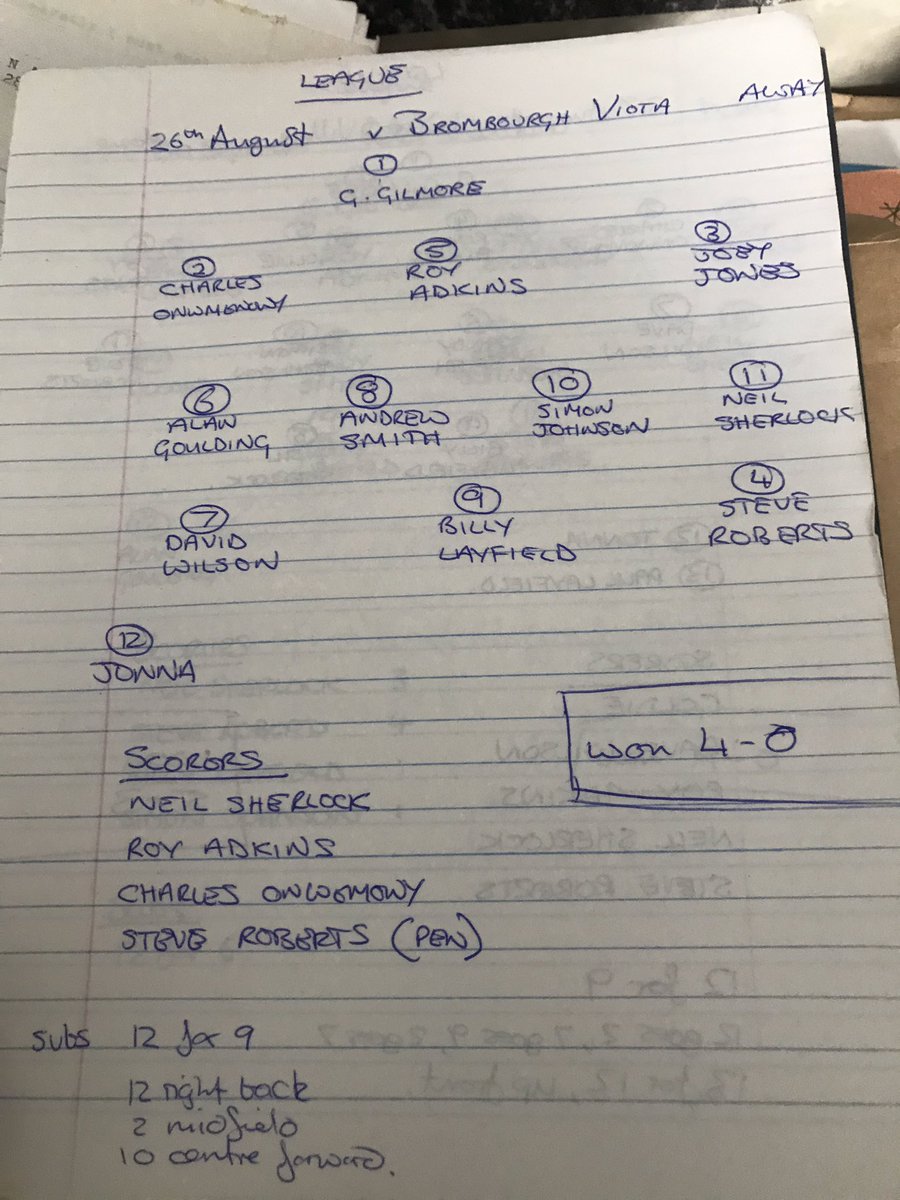 LEAGUE
26th August v BROMBOURGH VIOTA AWAY
1
G. GILMORE
2 5 3
CHARLES ROY JOEY
ONWMONOWY ADKINS JONES
6 8 10 11
ALAN ANDREW SIMON NEIL
GOULDING SMITH JOHNSON SHERLOCK
7 9 4
DAVID BILLY STEVE
WILSON LAYFIELD ROBERTS
12
JONNA
WON 4-0
SCORERS
NEIL SHERLOCK
ROY ADKINS
CHARLES ONWOMOWY
STEVE ROBERTS (PEN)
subs 12 for 9
12 right back
2 midfield
10 centre forward.